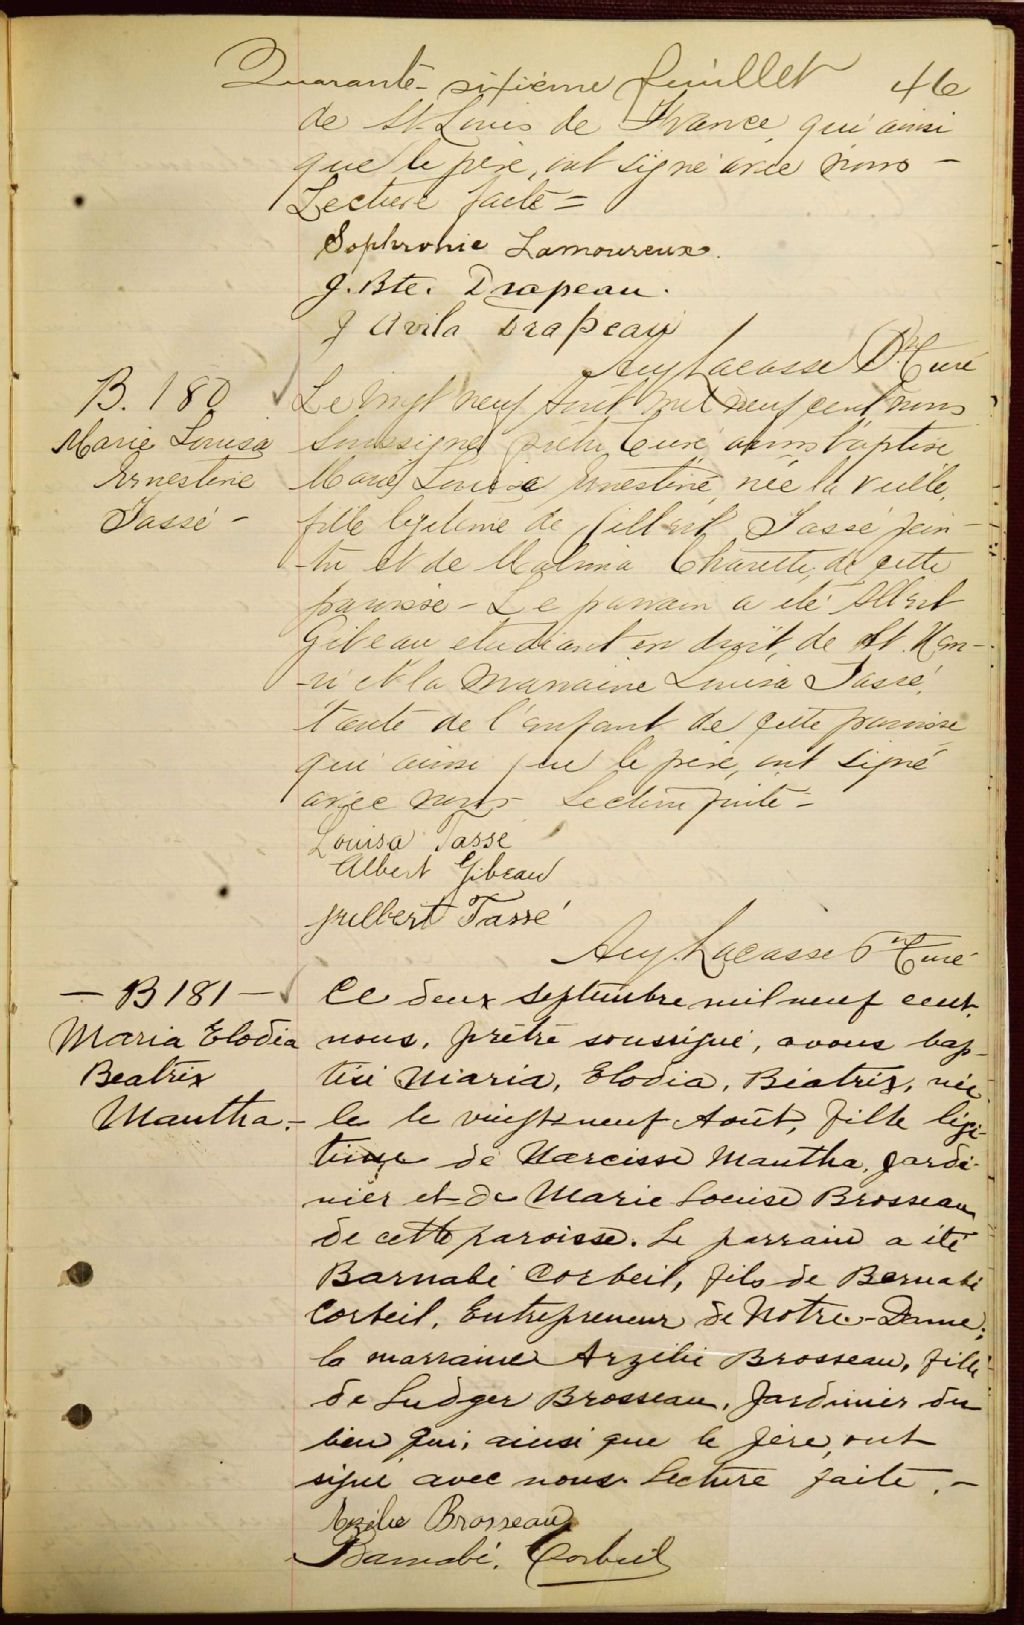 Quarante-sixième feuillet 46
de St. Louis de France, qui ainsi
que le père, ont signé avec nous -
Lecture faite =
Sophronie Lamoureux.
J. Bte. Drapeau.
J Avila Drapeau
Aug. Lacasse Ptre Curé
B. 180
Marie Louisa
Ernestine
Tassé -
Le vingt neuf Août mil neuf cent nous
soussigné prêtre Curé avons baptisé
Marie Louisa Ernestine, née la veille,
fille légitime de Gilbert Tassé pein-
-tre et de Malvina Charette, de cette
paroisse - Le parrain a été Albert
Gibeau etudiant en droit, de St. Hen-
-ri et la marraine Louisa Tassé,
tante de l'enfant de cette paroisse
qui ainsi que le père, ont signé
avec nous - Lecture faite -
Louisa Tassé
Albert Gibeau
Gilbert Tassé
Aug. Lacasse Ptre Curé
- B 181 -
Maria Elodia
Beatrix
Mantha. -
Ce deux septembre mil neuf cent,
nous, prêtre soussigné, avons bap-
tisé Maria, Elodia, Béatrix, née
le le vingt-neuf Août, fille légi-
time de Narcisse Mantha, jardi-
nier et de Marie Louise Brosseau
de cette paroisse. Le parrain a été
Barnabé Corbeil, fils de Bernabé
Corbeil, Entrepreneur de Notre-Dame;
la marraine Arzélie Brosseau, fille
de Ludger Brosseau, Jardinier du
lieu qui, ainsi que le père, ont
signé avec nous. Lecture faite. -
Azélie Brosseau
Barnabé. Corbeil